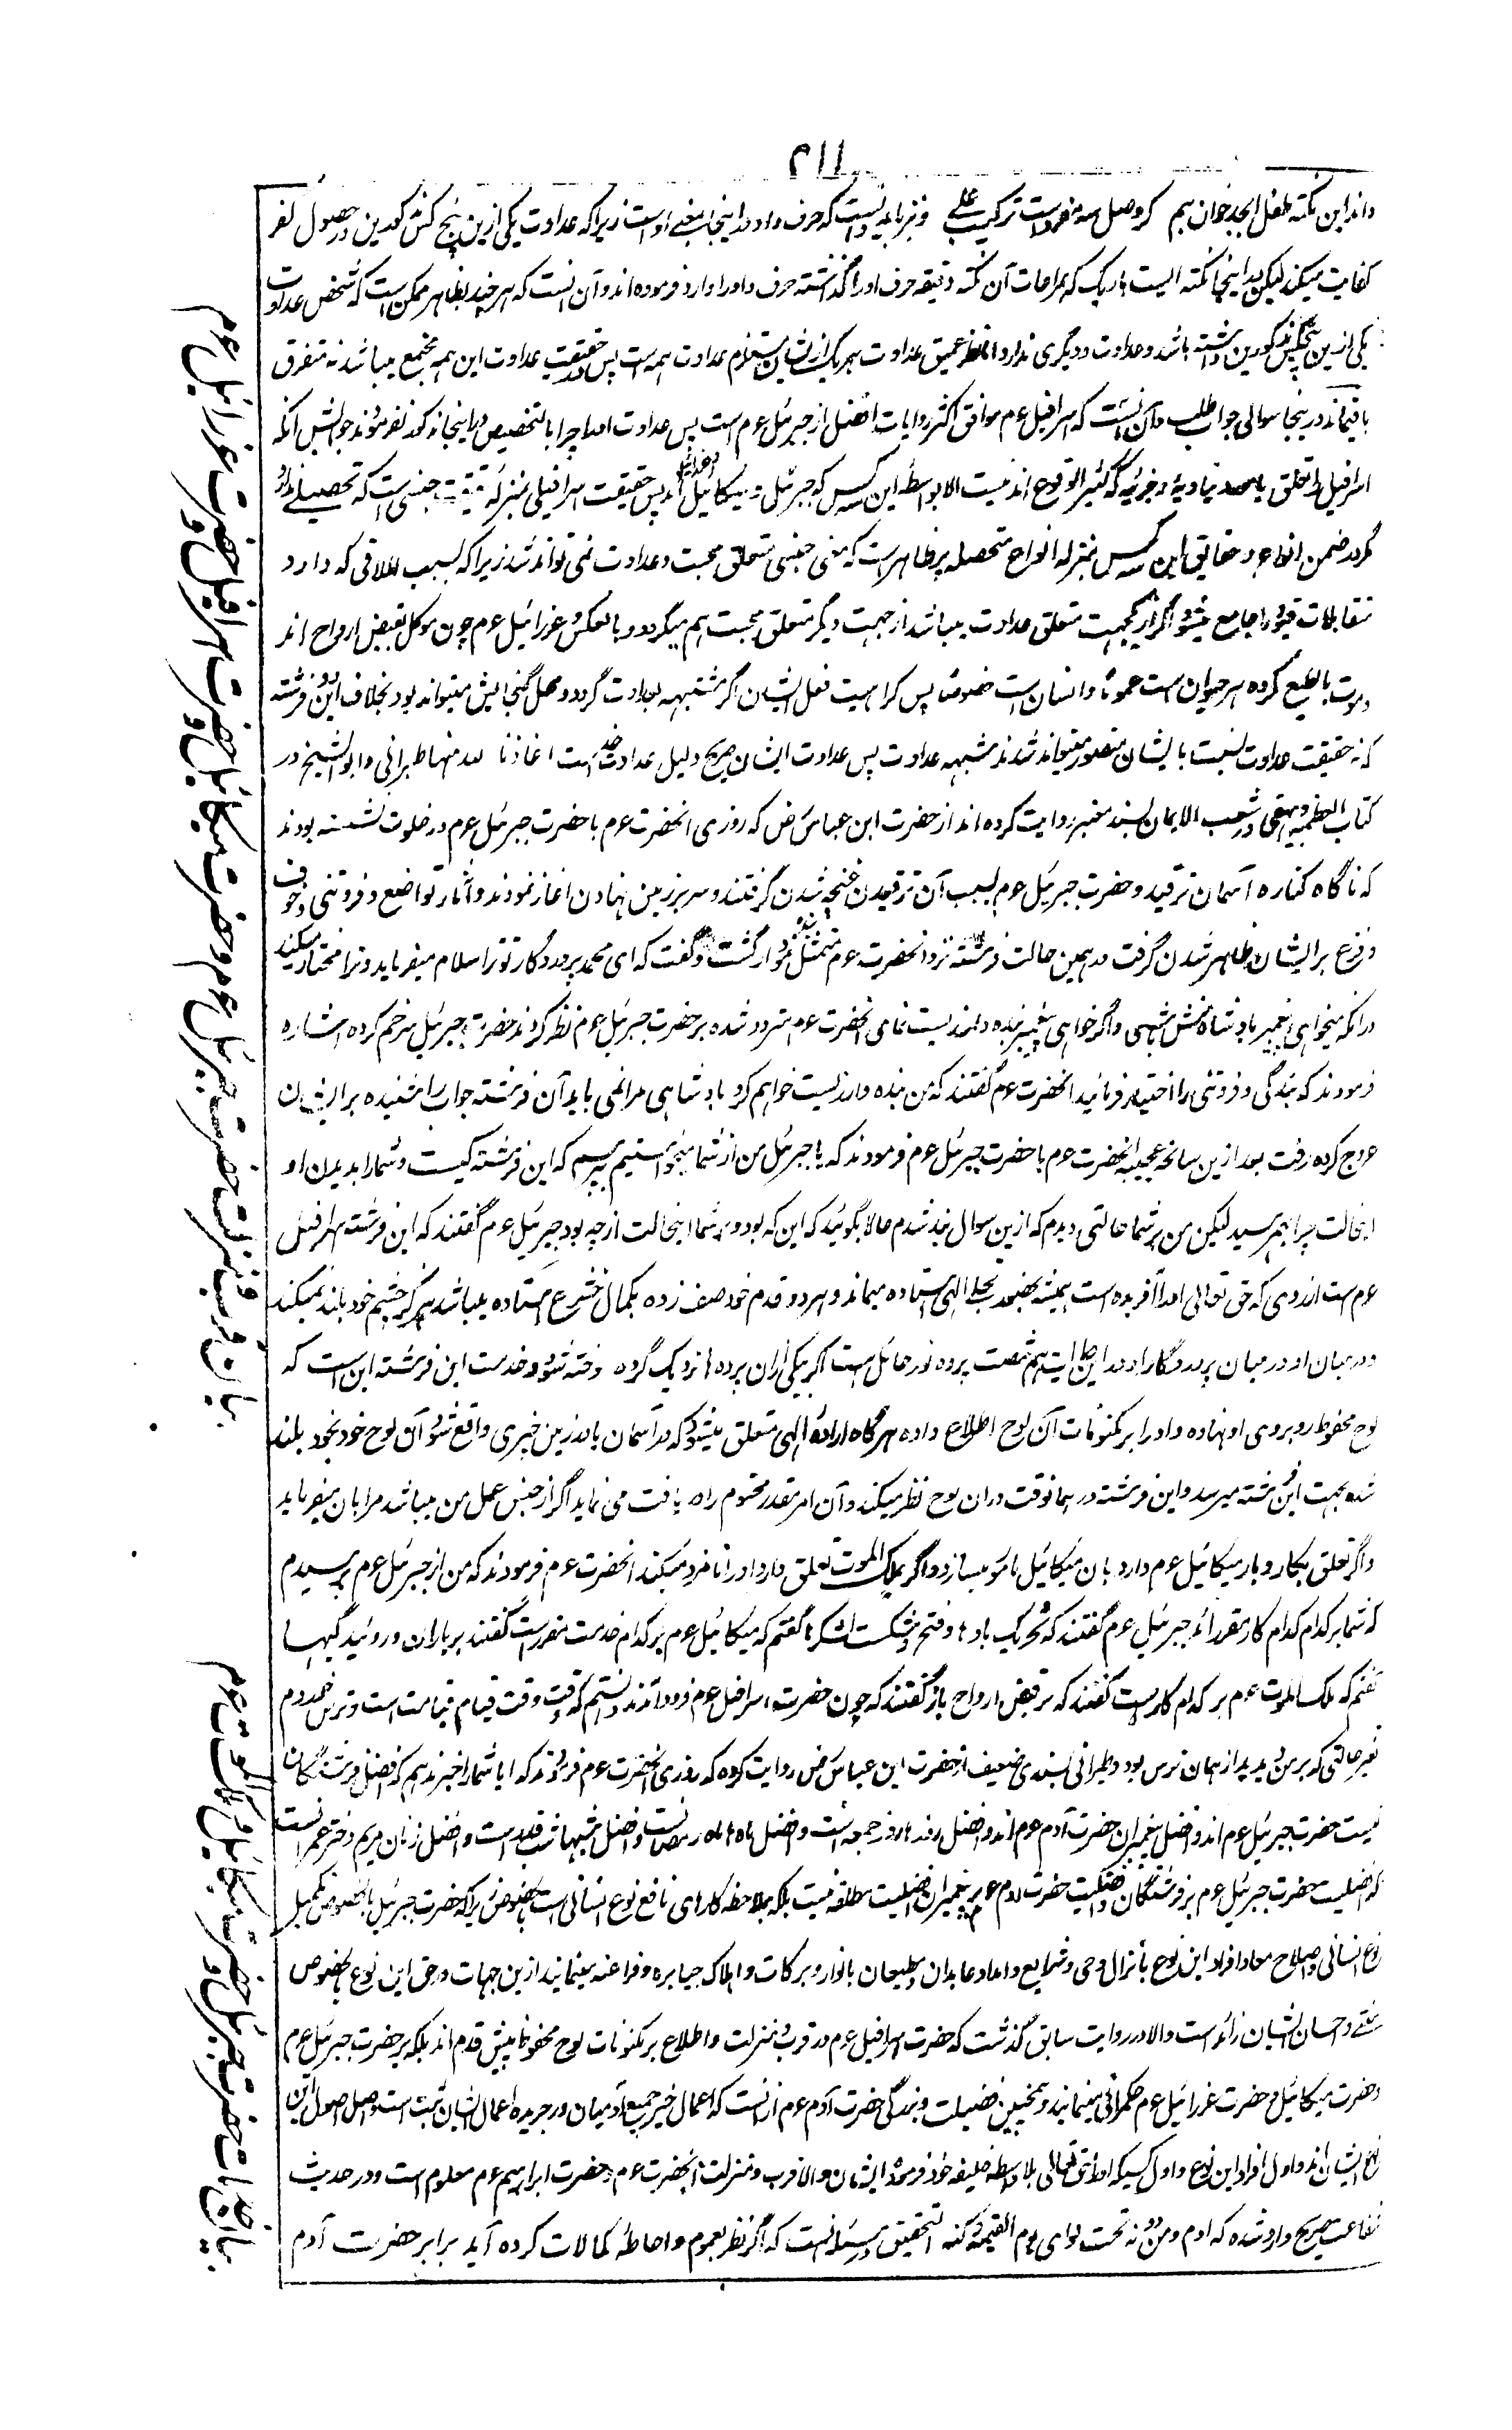 ۲۱۱
داند این نکته طفل ابجد خوان هم گر وصل همه مفردات ترکیب علی و نیز باید دانست که حرف واو در اینجا بمعنی او است زیرا که عداوت یکی ازین پنج کس مذکورین در حصول کفر
کفایت میکند لیکن در اینجا نکته ایست باریک که بمراعات آن نکته دقیقه حرف او را گذاشته حرف واو را وارد فرموده اند و آن اینست که هر چند بظاهر ممکن است که شخصی عداوت
یکی ازین پنجکس مذکورین داشته باشد و عداوت دیگری ندارد اما بنظر عمیق عداوت هر یک ازیشان مستلزم عداوت همه است پس در حقیقت عداوت این همه مجتمع میباشد نه متفرق
باقیماند درینجا سوالی جواب طلب و آن اینست که اسرافیل عم موافق اکثر روایات افضل از جبرئیل عم است پس عداوت او را چرا بالتخصیص در اینجا مذکور نفرمودند جوابش آنکه
اسرافیل را تعلق بامور دنیاویه و جزئیه که کثیر الوقوع اند نیست الا بواسطه این سه کس که جبرئیل و میکائیل و عزرائیل اند پس حقیقت اسرافیلی بمنزله حقیقت جنسی است که تحصیلی ندارد
مگر در ضمن انواع و حقایق این سه کس بمنزله انواع متحصله پر ظاهر است که معنی جنسی متعلق محبت و عداوت نمی تواند شد زیرا که بسبب اطلاقی که دارد
متقابلات قیود را جامع میشود اگر از یکجهت متعلق عداوت میباشد از جهت دیگر متعلق محبت هم میگردد و بالعکس و عزرائیل عم چون موکل بقبض ارواح اند
و موت بالطبع مکروه هر حیوان است عموماً و انسان است خصوصاً پس کراهیت فعل ایشان اگر مشتبه بعداوت گردد محل گنجایش میتواند بود بخلاف این دو فرشته
که نه حقیقت عداوت نسبت بایشان متصور میتواند شد نه مشتبه عداوت پس عداوت ایشان صریح دلیل عداوت خدا است اعاذنا الله منها طبرانی و ابو الشیخ در
کتاب العظمة و بیهقی در شعب الایمان بسند معتبر روایت کرده اند از حضرت ابن عباس رض که روزی انحضرت عم با حضرت جبرئیل عم در خلوت نشسته بودند
که ناگاه کناره آسمان ترقید و حضرت جبرئیل عم بسبب آن ترقیدن غنچه شدن گرفتند و سر بزمین نهادن اغاز نمودند و آثار تواضع و فروتنی و خوف
و فزع بر ایشان ظاهر شدن گرفت در همین حالت فرشته نزد انحضرت عم متمثل شده نمودار گشت و گفت که ای محمد پروردگار تو ترا سلام میفرماید و ترا مختار میکند
در آنکه میخواهی پیغمبر بادشاه منش باشی و اگر خواهی پیغمبر بنده مانند زیست نمای انحضرت عم متردد شده بر حضرت جبرئیل عم نظر کردند حضرت جبرئیل سر خم کرده اشاره
فرمودند که بندگی و فروتنی را اختیار فرمائید انحضرت عم گفتند که من بنده وار زیست خواهم کرد بادشاهی مرا نمی باید آن فرشته جواب را شنیده بر آسمان
عروج کرده رفت بعد ازین سانحه عجیبه انحضرت عم با حضرت جبرئیل عم فرمودند که یا جبرئیل من از شما میخواستم بپرسم که این فرشته کیست و شما را بدیدن او
اینحالت چرا بهم رسید لیکن من بر شما حالتی دیدم که ازین سوال بند شدم حالا بگوئید که این که بود و بر شما اینحالت از چه بود جبرئیل عم گفتند که این فرشته اسرافیل
عم است از روزی که حق تعالی او را آفریده است همیشه بحضور تجلی الهی استاده میماند و هر دو قدم خود صف زده بکمال خشوع استاده میباشد هرگز چشم خود بلند نمیکند
و در میان او و در میان پروردگار او در این حالت هم شصت پرده نور حائل است اگر یکی ازان پرده ها نزدیک گردد سوخته شود و خدمت این فرشته این است که
لوح محفوظ روبروی او نهاده و او را بر مکنونات آن لوح اطلاع داده هرگاه اراده الهی متعلق میشود که در آسمان یا در زمین خبری واقع شود آن لوح خود بخود بلند
شده بجبهت این فرشته میرسد و این فرشته در همانوقت دران لوح نظر میکند و آن امر مقدر محتوم را دریافت می نماید اگر از جنس عمل من میباشد مرا بآن میفرماید
و اگر تعلق بکار و بار میکائیل عم دارد بآن میکائیل مامور میسازد و اگر بملک الموت تعلق دارد او را نامزد میکند انحضرت عم فرمودند که من از جبرئیل عم پرسیدم
که شما بر کدام کدام کار مقرر اند جبرئیل عم گفتند که تحریک بادها و فتح و شکست لشکرها گفتم که میکائیل عم بر کدام خدمت مقرر است گفتند بر باران و روئیدگیها
گفتم که ملک الموت عم بر کدام کار است گفتند که بر قبض ارواح باز گفتند که چون حضرت اسرافیل عم فرود آمدند دانستم که وقت قیام قیامت است و ترس خوردم
تغیر حالتی که بر من دیدید از همان ترس بود و طبرانی بسندی ضعیف از حضرت ابن عباس رض روایت کرده که روزی انحضرت عم فرمودند که ایا شما را خبر ندهم که افضل فرشتگان
کیست حضرت جبرئیل عم اند و افضل پیغمبران حضرت آدم عم اند و افضل روزها روز جمعه است و افضل ماه ها ماه رمضان است و افضل شبها شب قدر است و افضل زنان مریم دختر عمران است
که افضلیت حضرت جبرئیل عم بر فرشتگان و افضلیت حضرت آدم عم بر پیغمبران افضلیت مطلقه نیست بلکه بملاحظه کارهای نافع نوع انسانی است بالخصوص زیرا که حضرت جبرئیل بالخصوص تکمیل
نوع انسانی و اصلاح معاد افراد این نوع بانزال وحی و شرایع و امداد عابدان و مطیعان بانوار و برکات و اهلاک جبابره و فراعنه مینمایند ازین جهات در حق این نوع بالخصوص
منت و احسان ایشان زائد است والا در روایت سابق گذشت که حضرت اسرافیل عم در قرب و منزلت و اطلاع بر مکنونات لوح محفوظ پیش قدم اند بلکه بر حضرت جبرئیل عم
و حضرت میکائیل و حضرت عزرائیل عم حکمرانی مینمایند و همچنین فضیلت و بزرگی حضرت آدم عم ازانست که اعمال خیر جمیع آدمیان در جریده اعمال ایشان ثبت است و اصل اصول این
نوع ایشان اند و اول افراد این نوع و اول کسیکه او را حق تعالی بلا واسطه خلیفه خود فرموده ایشان والا قرب و منزلت انحضرت عم و حضرت ابراهیم عم معلوم است و در حدیث
شفاعت صریح وارد شده که ادم و من دونه تحت لوای یوم القیمة و کنه التحقیق درین مسئله انست که اگر نظر بعموم و احاطه کمالات کرده آید برابر حضرت آدم
بیان قرب و منزلت حضرت جبرئیل عم و حضرت میکائیل و حضرت اسرافیل و حضرت عزرائیل عم
بیان خدمات حضرت جبرئیل و حضرت میکائیل و ملک الموت عم